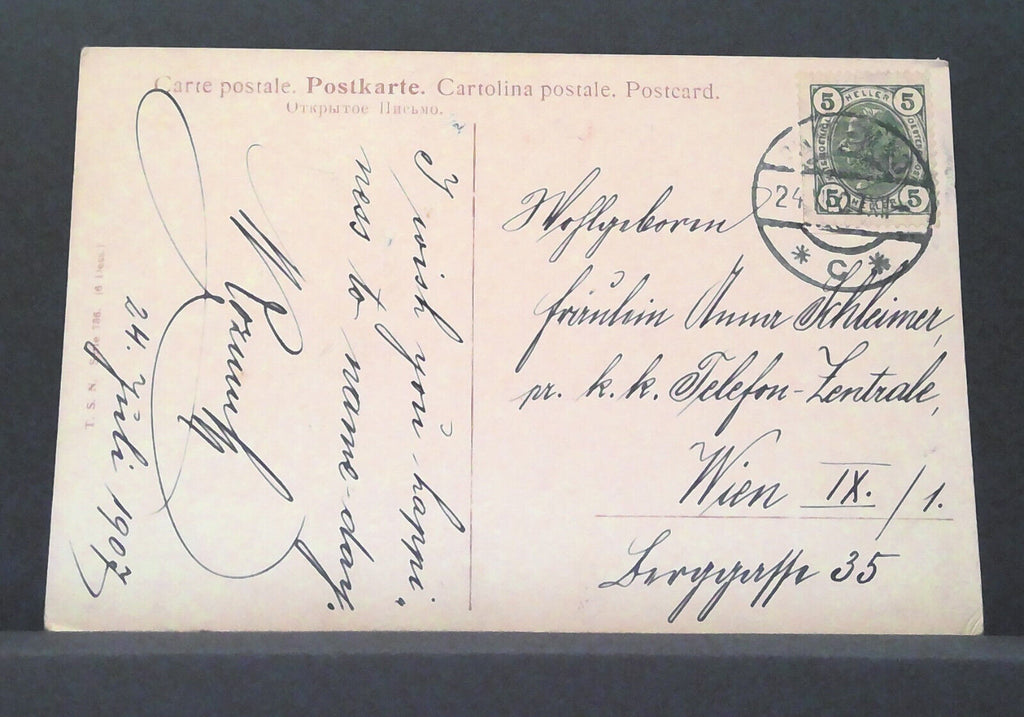 Carte postale. Postkarte. Cartolina postale. Postcard.
Открытое Письмо.
5 HELLER 5
5 HELLER 5
24
* C *
Wohlgeboren
Fräulein Anna Schleimer,
pr. k. k. Telefon-Zentrale,
Wien IX./1.
Berggasse 35
I wish you happi„
ness to name-day.
24. Juli 1907
T. S. N. 186. (6 Dess.)